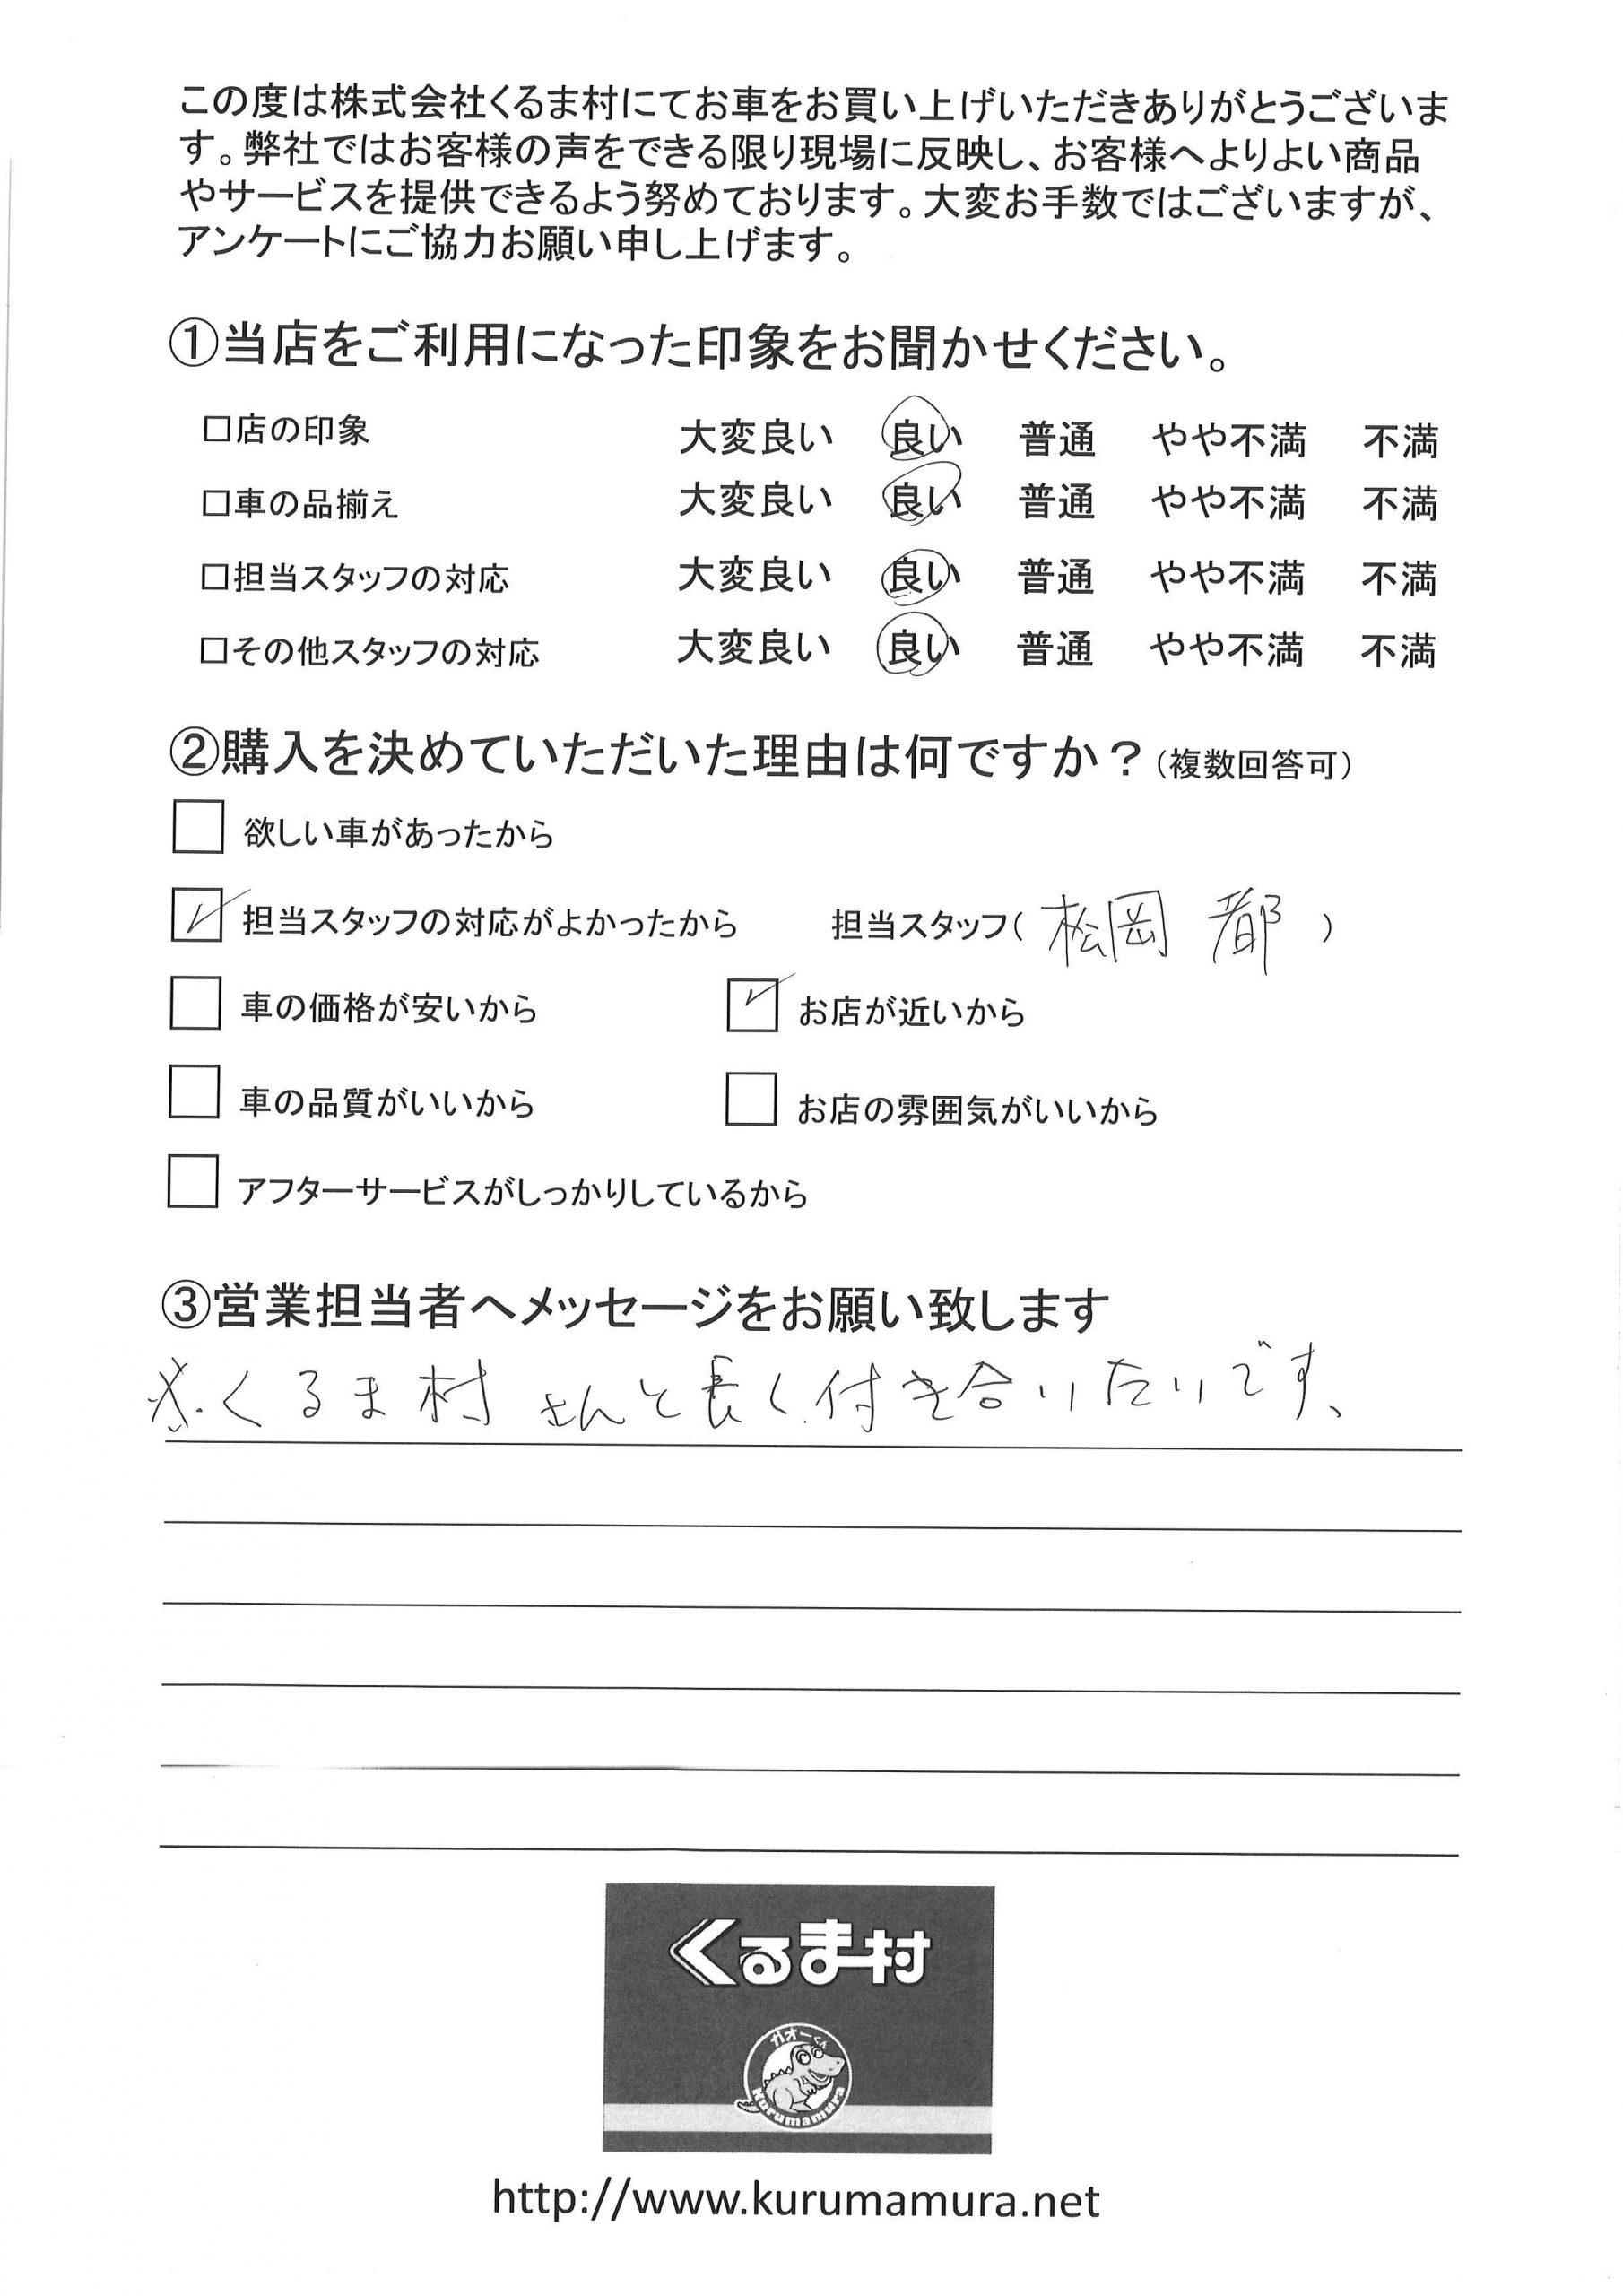 この度は株式会社くるま村にてお車をお買い上げいただきありがとうございま
す。弊社ではお客様の声をできる限り現場に反映し、お客様へよりよい商品
やサービスを提供できるよう努めております。大変お手数ではございますが、
アンケートにご協力お願い申し上げます。
①当店をご利用になった印象をお聞かせください。
□店の印象 大変良い 良い 普通 やや不満 不満
□車の品揃え 大変良い 良い 普通 やや不満 不満
□担当スタッフの対応 大変良い 良い 普通 やや不満 不満
□その他スタッフの対応 大変良い 良い 普通 やや不満 不満
②購入を決めていただいた理由は何ですか？(複数回答可)
□ 欲しい車があったから
☑ 担当スタッフの対応がよかったから 担当スタッフ( 松岡 都 )
□ 車の価格が安いから ☑ お店が近いから
□ 車の品質がいいから □ お店の雰囲気がいいから
□ アフターサービスがしっかりしているから
③営業担当者へメッセージをお願い致します
※.くるま村さんと長く付き合いたいです、
くるま村
ガオーくん
Kurumamura
http://www.kurumamura.net